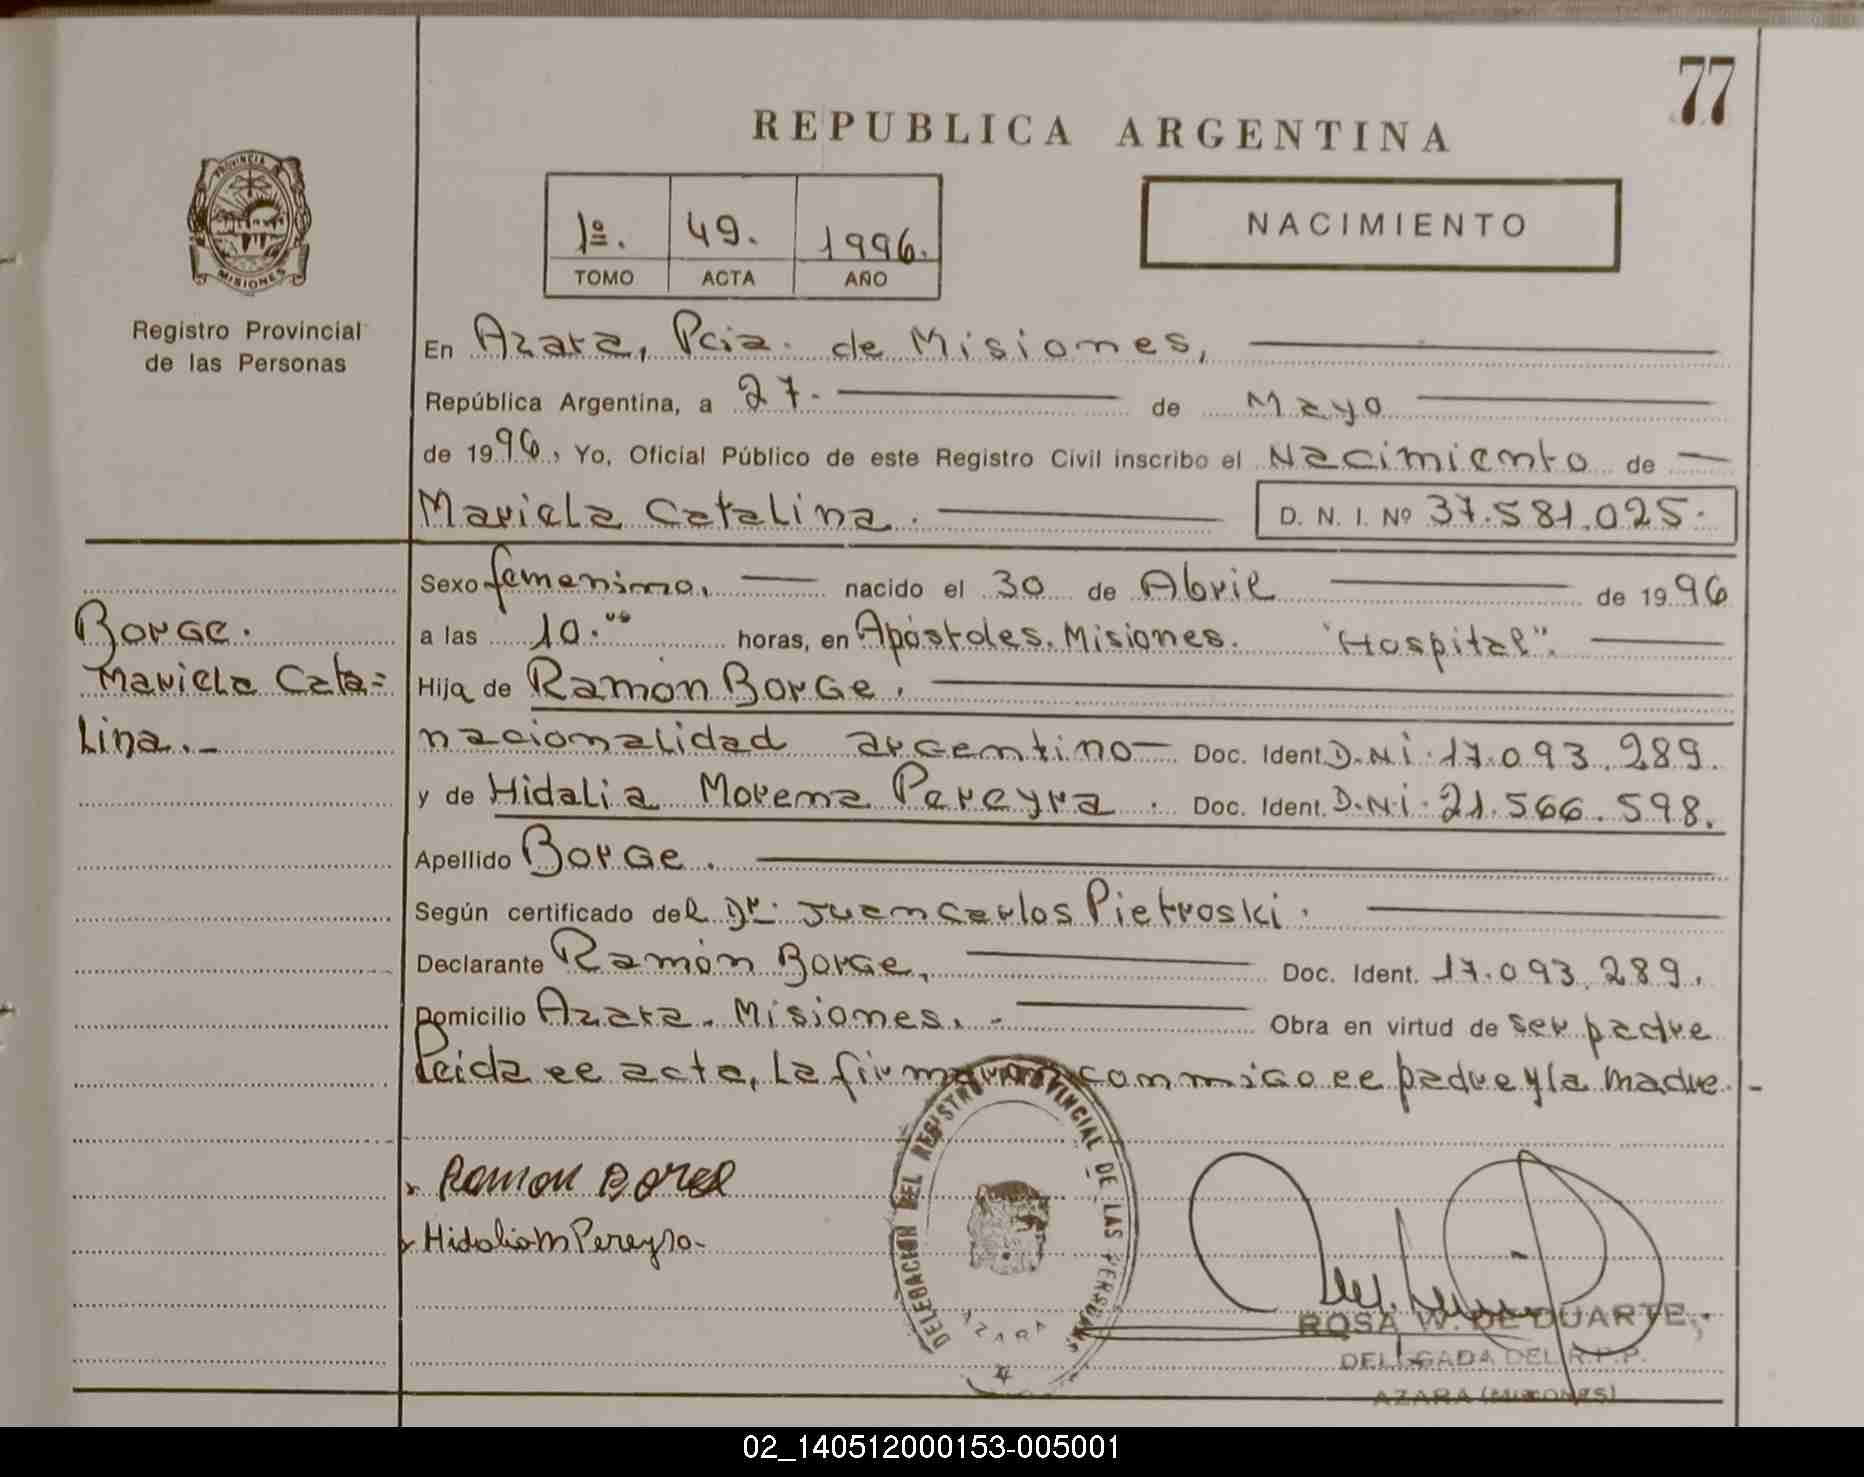 77
REPUBLICA ARGENTINA
PROVINCIA
MISIONES
1º. 49. 1996.
TOMO ACTA AÑO
NACIMIENTO
Registro Provincial
de las Personas
En Azara, Pcia. de Misiones,
República Argentina, a 27. de Mayo
de 1996, Yo, Oficial Público de este Registro Civil inscribo el Nacimiento de
Mariela Catalina. D. N. I. Nº 37.581.025.
Sexo femenino. nacido el 30 de Abril de 1996
Borge.
a las 10.00 horas, en Apóstoles. Misiones. "Hospital".
Mariela Cata=
Hija de Ramón Borge.
Lina.-
nacionalidad argentino- Doc. Ident. D.N.i. 17.093.289.
y de Hidalia Morena Pereyra. Doc. Ident. D.N.i. 21.566.598.
Apellido Borge.
Según certificado del Dr. Juan Carlos Pietroski.
Declarante Ramón Borge, Doc. Ident. 17.093.289.
Domicilio Azara. Misiones. - Obra en virtud de ser padre
Leida el acta, la firmaron conmigo el padre y la madre.-
Ramon Borge
Hidalia M Pereyra-
DELEGACION DEL REGISTRO PROVINCIAL DE LAS PERSONAS
AZARA
ROSA W. DE DUARTE
DELEGADA DEL R.P.P.
AZARA (MISIONES)
02_140512000153-005001